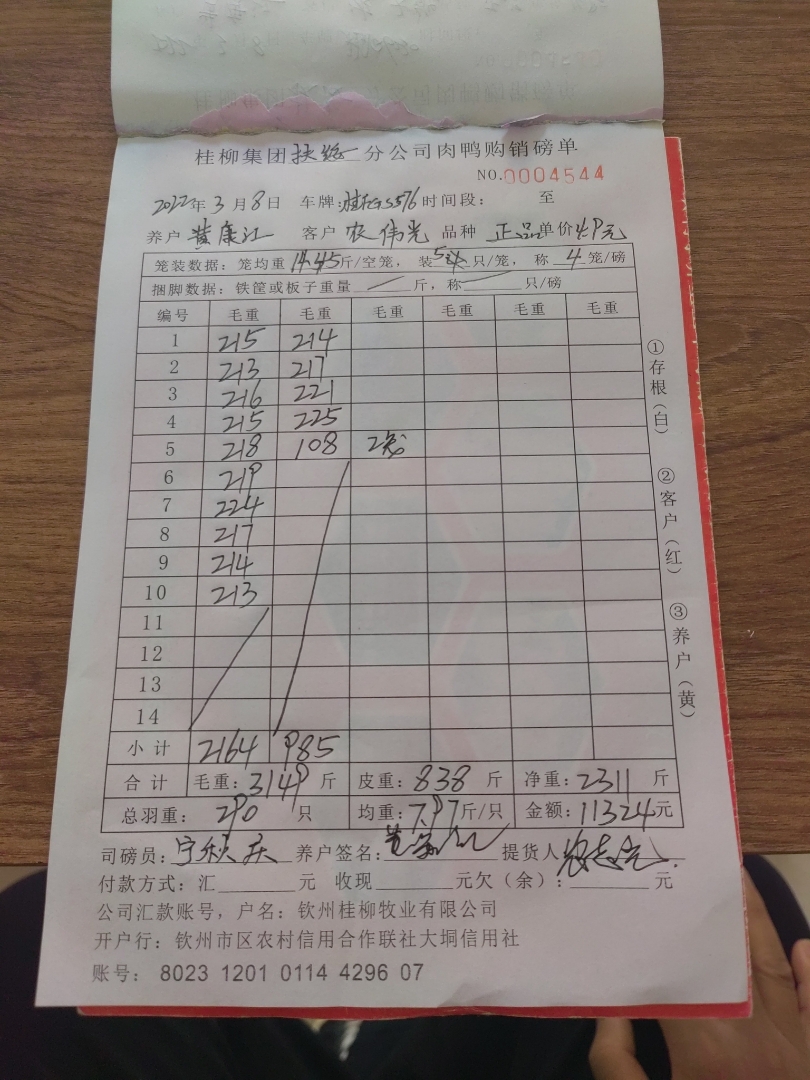 桂柳集团扶绥分公司肉鸭购销磅单
NO.0004544
2022年3月8日 车牌: 时间段: 至
养户 黄康江 客户 农伟光 品种 正品 单价4.9元
笼装数据:笼均重14.45斤/空笼,装5只/笼,称4笼/磅
捆脚数据:铁筐或板子重量 斤,称 只/磅
编号 毛重 毛重 毛重 毛重 毛重 毛重
1 215 214
2 213 217
3 216 221
4 215 225
5 218 108 2笼
6 219
7 224
8 217
9 214
10 213
11
12
13
14
小计 2164 985
合计 毛重:3149斤 皮重:838斤 净重:2311斤
总羽重:290只 均重:7.97斤/只 金额:11324元
司磅员: 养户签名: 提货人
付款方式:汇 元 收现 元欠(余): 元
公司汇款账号,户名:钦州桂柳牧业有限公司
开户行:钦州市区农村信用合作联社大垌信用社
账号:8023 1201 0114 4296 07
①存根(白)
②客户(红)
③养户(黄)